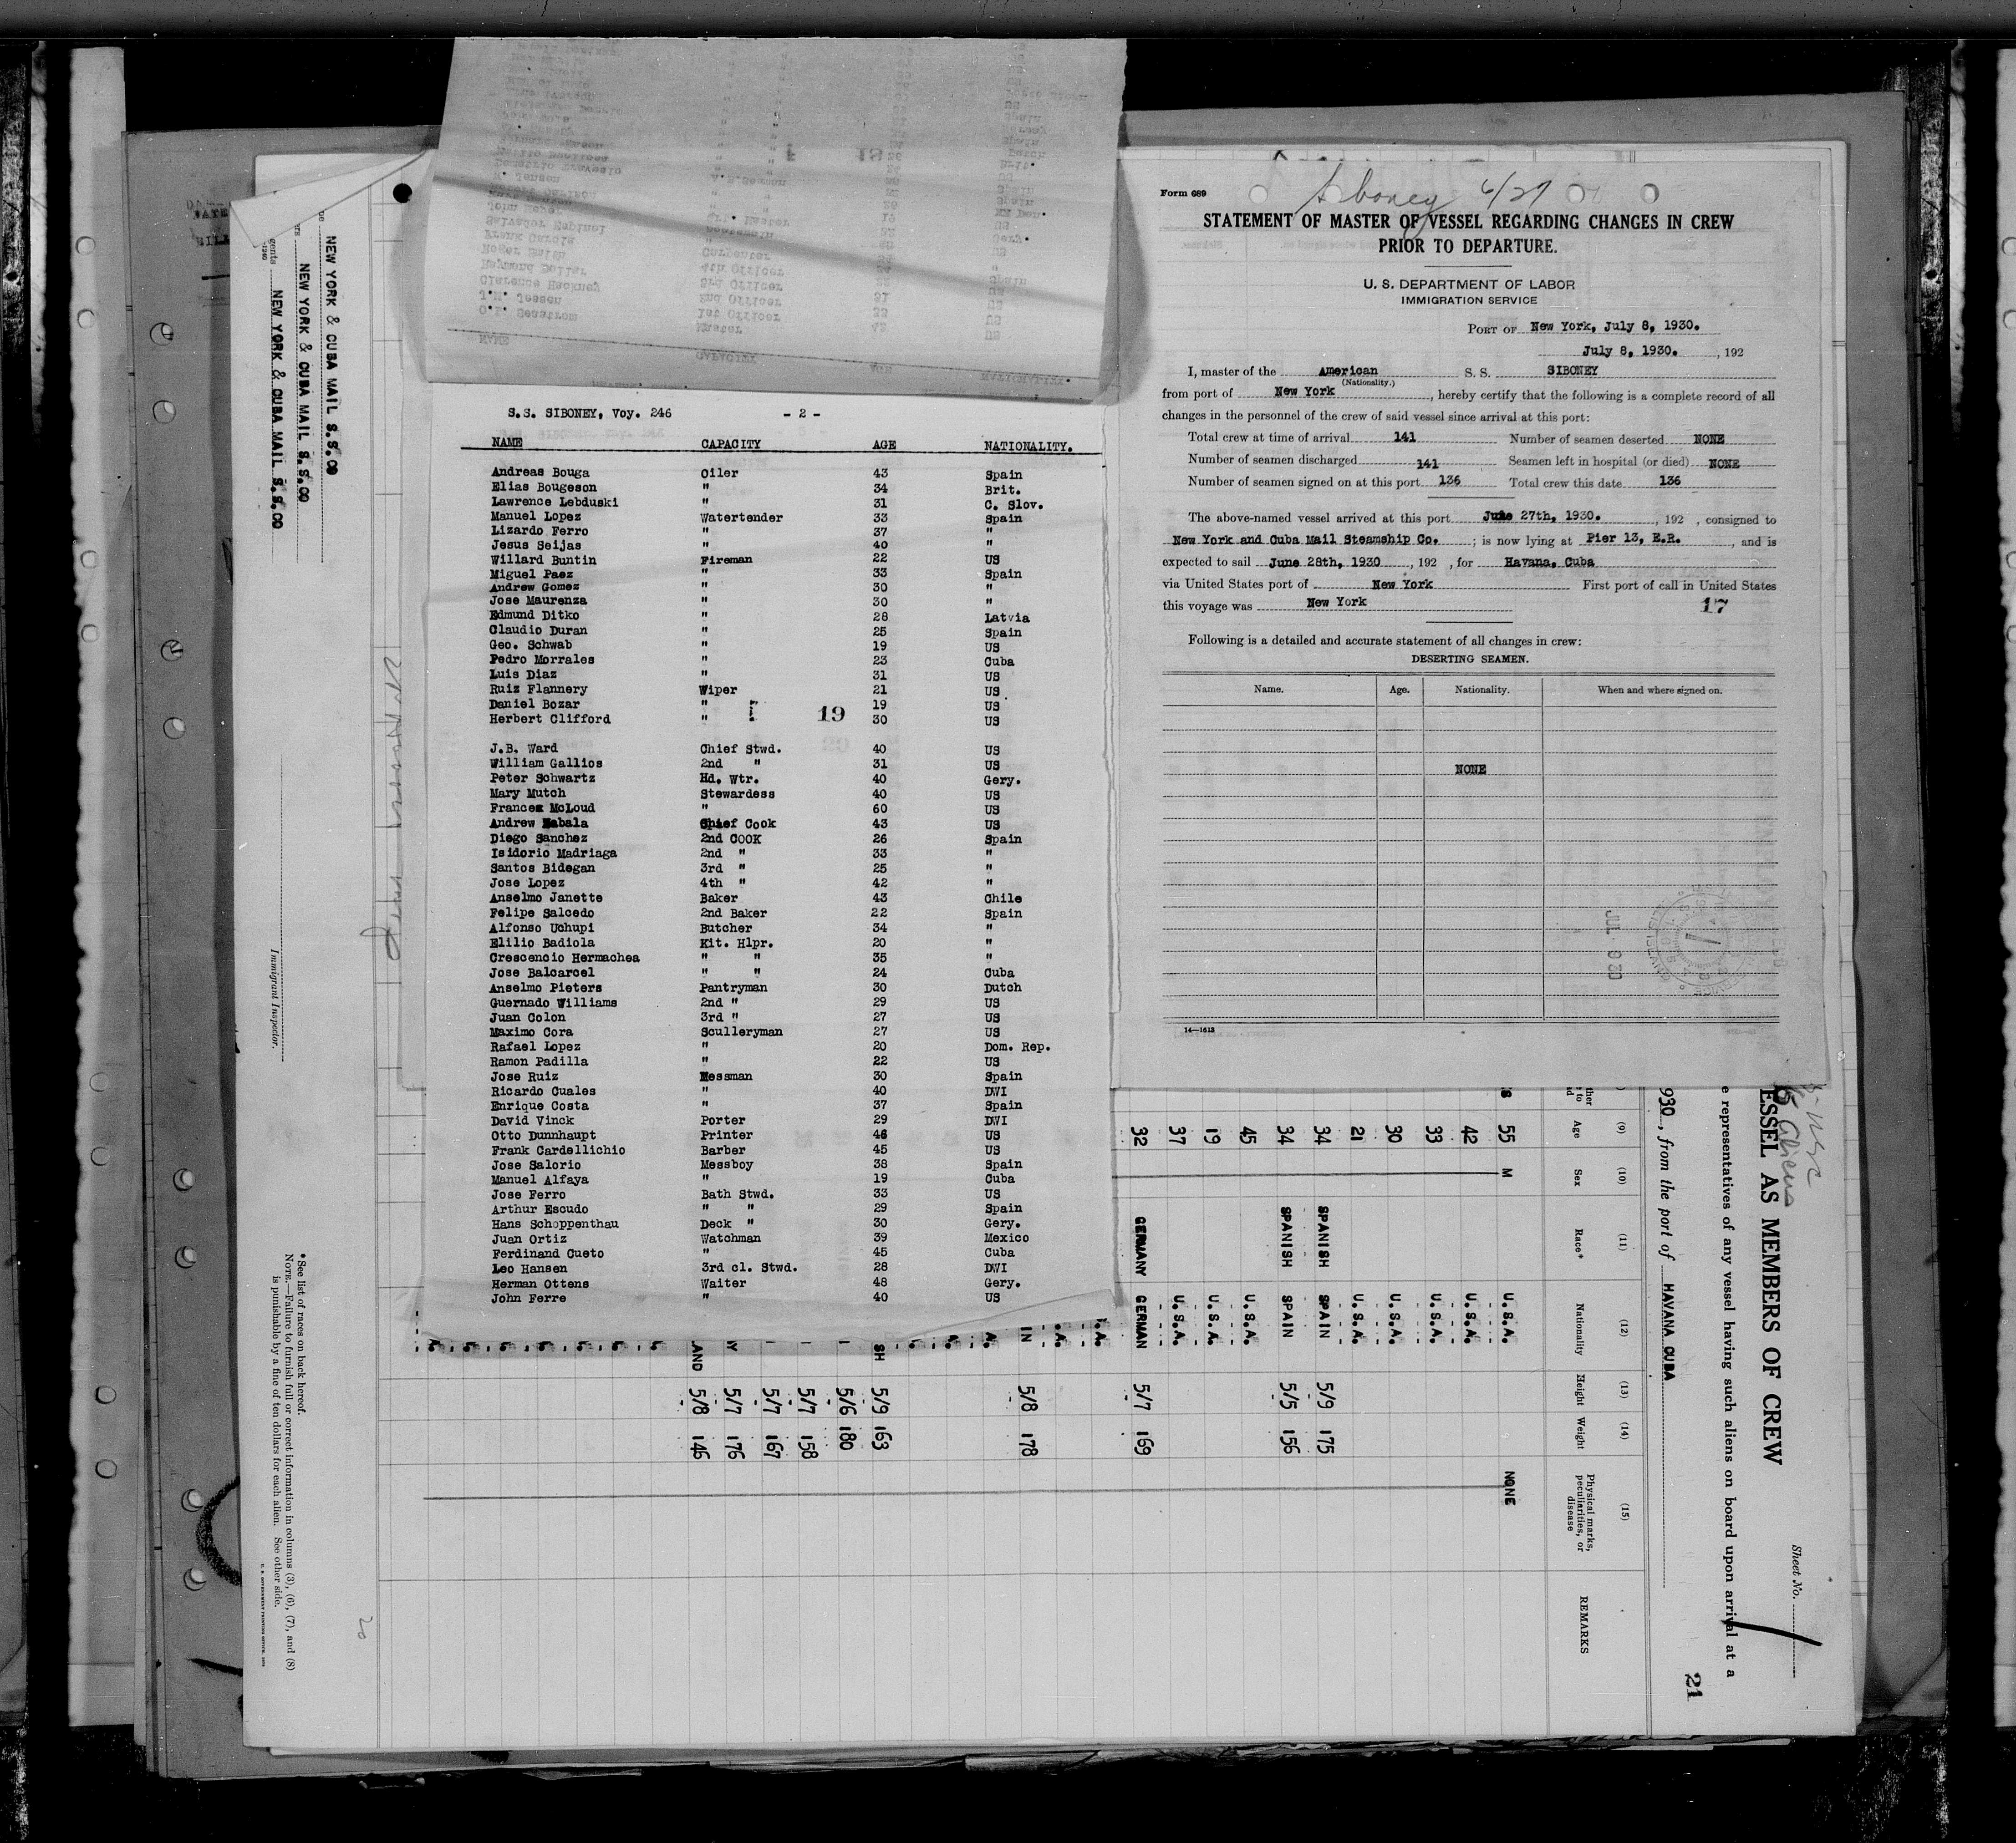 S.S. SIBONEY, Voy. 246 - 2 -
NAME CAPACITY AGE NATIONALITY.
Andreas Bouga Oiler 43 Spain
Elias Bougeson " 34 Brit.
Lawrence Lebduski " 31 C. Slov.
Manuel Lopez Watertender 33 Spain
Lizardo Ferro " 37 "
Jesus Seijas " 40 "
Willard Buntin Fireman 22 US
Miguel Paez " 33 Spain
Andrew Gomez " 30 "
Jose Maurenza " 30 "
Edmund Ditko " 28 Latvia
Claudio Duran " 25 Spain
Geo. Schwab " 19 US
Pedro Morrales " 23 Cuba
Luis Diaz " 31 US
Ruiz Flannery Wiper 21 US
Daniel Bozar " 19 US
Herbert Clifford " 30 US
19
J.B. Ward Chief Stwd. 40 US
William Gallios 2nd " 31 US
Peter Schwartz Hd. Wtr. 40 Gery.
Mary Mutch Stewardess 40 US
Frances McLoud " 60 US
Andrew Chief Cook 43 US
Diego Sanchez 2nd COOK 26 Spain
Isidorio Madriaga 2nd " 33 "
Santos Bidegan 3rd " 25 "
Jose Lopez 4th " 42 "
Anselmo Janette Baker 43 Chile
Felipe Salcedo 2nd Baker 22 Spain
Alfonso Uchupi Butcher 34 "
Elilio Badiola Kit. Hlpr. 20 "
Crescencio Hermachea " " 35 "
Jose Balcarcel " " 24 Cuba
Anselmo Pieters Pantryman 30 Dutch
Guernado Williams 2nd " 29 US
Juan Colon 3rd " 27 US
Maximo Cora Sculleryman 27 US
Rafael Lopez " 20 Dom. Rep.
Ramon Padilla " 22 US
Jose Ruiz Messman 30 Spain
Ricardo Cuales " 40 DWI
Enrique Costa " 37 Spain
David Vinck Porter 29 DWI
Otto Dunnhaupt Printer 46 US
Frank Cardellichio Barber 45 US
Jose Salorio Messboy 38 Spain
Manuel Alfaya " 19 Cuba
Jose Ferro Bath Stwd. 33 US
Arthur Escudo " " 29 Spain
Hans Schoppenthau Deck " 30 Gery.
Juan Ortiz Watchman 39 Mexico
Ferdinand Cueto " 45 Cuba
Leo Hansen 3rd cl. Stwd. 28 DWI
Herman Ottens Waiter 48 Gery.
John Ferre " 40 US
Form 689
Siboney 6/27
STATEMENT OF MASTER OF VESSEL REGARDING CHANGES IN CREW
PRIOR TO DEPARTURE.
U. S. DEPARTMENT OF LABOR
IMMIGRATION SERVICE
PORT OF New York, July 8, 1930.
July 8, 1930. , 192
I, master of the American S. S. SIBONEY
(Nationality.)
from port of New York , hereby certify that the following is a complete record of all
changes in the personnel of the crew of said vessel since arrival at this port:
Total crew at time of arrival 141 Number of seamen deserted NONE
Number of seamen discharged 141 Seamen left in hospital (or died) NONE
Number of seamen signed on at this port 136 Total crew this date 136
The above-named vessel arrived at this port June 27th, 1930. , 192 , consigned to
New York and Cuba Mail Steamship Co. ; is now lying at Pier 13, E.R. , and is
expected to sail June 28th, 1930 , 192 , for Havana, Cuba
via United States port of New York First port of call in United States
this voyage was New York
17
Following is a detailed and accurate statement of all changes in crew:
DESERTING SEAMEN.
Name. Age. Nationality. When and where signed on.
NONE
14—1613
NEW YORK & CUBA MAIL S.S.CO
NEW YORK & CUBA MAIL S.S.CO
NEW YORK & CUBA MAIL S.S.CO
Immigrant Inspector.
*See list of races on back hereof.
NOTE.—Failure to furnish full or correct information in columns (3), (6), (7), and (8)
is punishable by a fine of ten dollars for each alien. See other side.
Sheet No.
ESSEL AS MEMBERS OF CREW
e representatives of any vessel having such aliens on board upon arrival at a
930, from the port of HAVANA CUBA
21
(9) (10) (11) (12) (13) (14) (15)
Age Sex Race* Nationality Height Weight Physical marks, peculiarities, or disease REMARKS
55 M U.S.A. NONE
42 U.S.A.
33 U.S.A.
30 U.S.A.
21 U.S.A.
34 SPANISH SPAIN 5/9 175
34 SPANISH SPAIN 5/5 156
45 U.S.A.
19 U.S.A.
37 U.S.A.
32 GERMANY GERMAN 5/7 169
IN 5/8 178
SH 5/9 163
5/6 180
5/7 158
5/7 167
5/7 176
AND 5/8 146